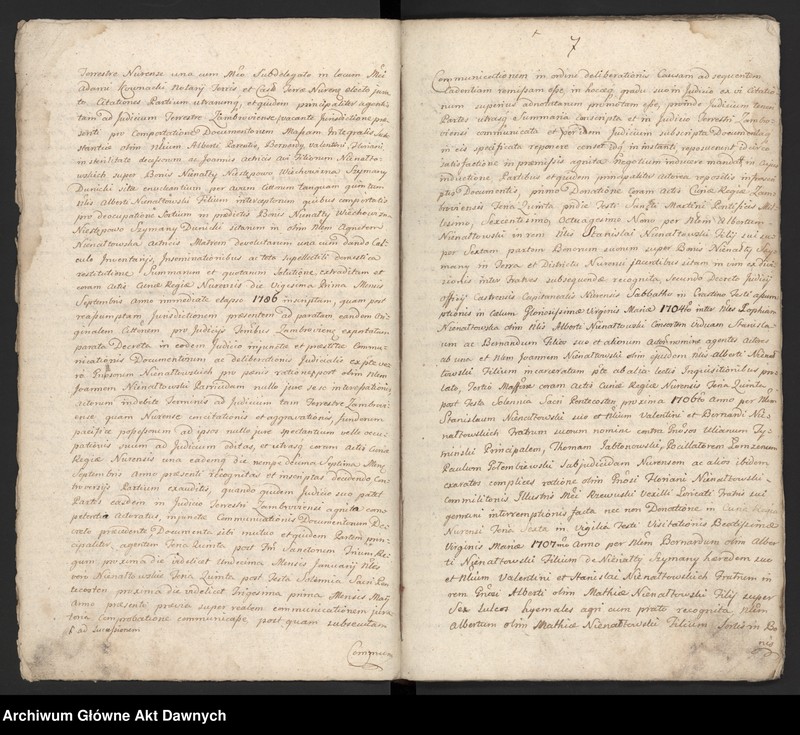 Terrestre Nurense una cum Mfco Subdelegato in locum Mfci
Adami Kownacki Notarij Terrestris et Castr. Terræ Nurens. electo juxta
Citationes Partium utrarumq. et quidem principaliter agentium
tam ad Judicium Terrestre Zambroviense vacante Jurisdictione
pro Comportatione Documentorum Massam Integralis
olim Nblium Alberti Parentis, Bernardi, Valentini, Floriani
in sterilitate decessorum ac Joannis actricis avi Filiorum Nienałtowskich
super Bonis Nienałty Niestępowo Wiechowizna Szymany
Dunichi sita
olim Nblis Alberti Nienałtowski Filium interceptorum quibus comportatis
pro deoccupatione Sortium in prædictis Bonis Nienałty Wiechowizna
Niestępowo Szymany Dunichi sitarum in olim Nblem Agnetem
Nienałtowska Actricis Matrem devolutarum una cum dando Calculo
Inventarij, Inseminationibus ac tota suppellectili domestica
restitutione Summarum et quotarum solutione extraditam et
coram Actis Curiæ Regiæ Nurensis die Vigesima Prima Mensis
Septembris Anno immediate elapso 1786 inscriptum, quam post
reassumptam Jurisdictionem præsentem ad paratam eandem originalem
Citationem per Judicium Terrestre Zambroviense
parata Decreta in eodem Judicio injunctæ et præstitæ Communicationis
Documentorum ac deliberationis Judicialis
Nienałtowskich pro pœnis ratione post olim Nblem
Joannem Nienałtowski Patruelem nullo jure
indebite Terminis ad Judicium tam Terrestre Zambroviense
quam Nurense concitationis et aggravationis, fundorum
pacifice possessorum ad ipsos nullo jure spectantium velle
suum ad Judicium editas, et utrasq. coram Actis Curiæ
Regiæ Nurensis una eademq. die nempe decima Septima Mensis
Septembris Anno præsenti recognitas et inscriptas decidendo Controversijs
Partium exauditis, quando quidem Judicio suo patet
Partes easdem in Judicio Terrestri Zambroviensi agnita competentia
Actoratus, injunctæ Communicationis Documentorum Decreto
præcedente Documenta sibi mutuo et quidem Partem principaliter
agentem Feria Quinta post Festum Sanctorum Trium Regum
proxima die videlicet Undecima Mensis Januarij Nbles
vero Nienałtowskie Feria Quinta post Festa Solennia Sacri Pentecosten
proxima die videlicet Trigesima prima Mensis Maij
Anno præsenti prævia super realem communicationem juratoria
Comprobatione communicasse, post quam subsecutam
ad Successionem
Commun
7
Communicationem in ordine deliberationis Causam ad sequentem
Cadentiam remissam esse, in hocceq. gradu suo in Judicio ex vi Citationum
superius adnotatarum promotam esse, proinde Judicium tam
Partes utrasq. Summaria conscripta et in Judicio Terrestri Zambroviensi
communicata et per idem Judicium subscripta Documentaq.
in eis specificata reponere censet idq. in instanti, reposuerunt Duplici
satisfactione in præmissis agnita Negotium inducere mandat, in cujus
inductione Partibus et quidem principaliter Actorea repositis infrascriptis
Documentis, primo Donatione Coram Actis Curiæ Regiæ Zambroviensis
Feria Quinta pridie Festi Sancti Martini Pontificis Millesimo,
Sexcentesimo, Octuagesimo Nono per Nblem Albertum
Nienałtowski in rem Nblis Stanislai Nienałtowski Filij sui
super Sextam partem Bonorum suorum super Bonis Nienałty Szymany
in Terra et Districtu Nurensi jacentibus sitam in vim ex divisionis
inter Fratres subsequendæ recognita, Secundo Decreto Judicij
officij Castrensis Capitanealis Nurensis Sabbatho in Crastino Festi assumptionis
in Cœlum Gloriosissimæ Virginis Mariæ 1704to inter Nblem Sophiam
Nienałtowska olim Nblis Alberti Nienałtowski Consortem viduam Stanislaum
ac Bernardum Filios suo et aliorum nomine agentes Actores
ab una et Nblem Joannem Nienałtowski olim ejusdem Nblis Alberti Nienałtowski
Filium incarceratum parte ab alia lectis Inquisitionibus prolato,
Tertio Manifestatione coram Actis Curiæ Regiæ Nurensis Feria Quinta
post Festa Solennia Sacri Pentecosten proxima 1706to Anno per Nblem
Stanislaum Nienałtowski suo et Nblium Valentini et Bernardi Nienałtowskich
Fratrum suorum nomine contra Gnosos Ulianum Tyminski
Principalem, Thomam Jabłonowski, Pocillatorem Lomzensem
Paulum Gołembiewski Subjudicidam Nurensem ac alios ibidem
exaratos complices ratione olim Gnosi Floriani Nienałtowski
Commilitonis Illustris Mfci Rzewuski Vexilli Loricati Fratris sui
germani interemptionis facta nec non Donatione in Curia Regia
Nurensi Feria Sexta in Vigilia Festi Visitationis Beatissimæ
Virginis Mariæ 1707mo Anno per Nblem Bernardum olim Alberti
Nienałtowski Filium de Nienałty Szymany hæredem suo
et Nblium Valentini et Stanislai Nienałtowskich Fratrum in
rem Gnosi Alberti olim Mathiæ Nienałtowski Filij super
Sex Sulcos hyemales agri cum prato recognita, Nblem
Albertum olim Mathiæ Nienałtowski Filium, Sortis in Bo
nis
Archiwum Główne Akt Dawnych